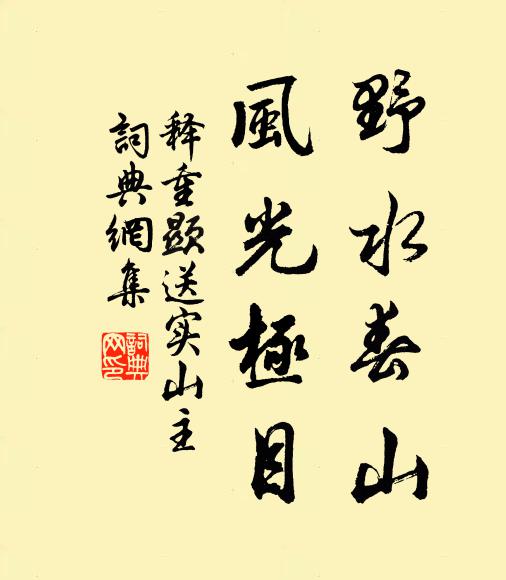 野水春山
風光極目
释重顯送实山主
詞典網集
詞典
网印